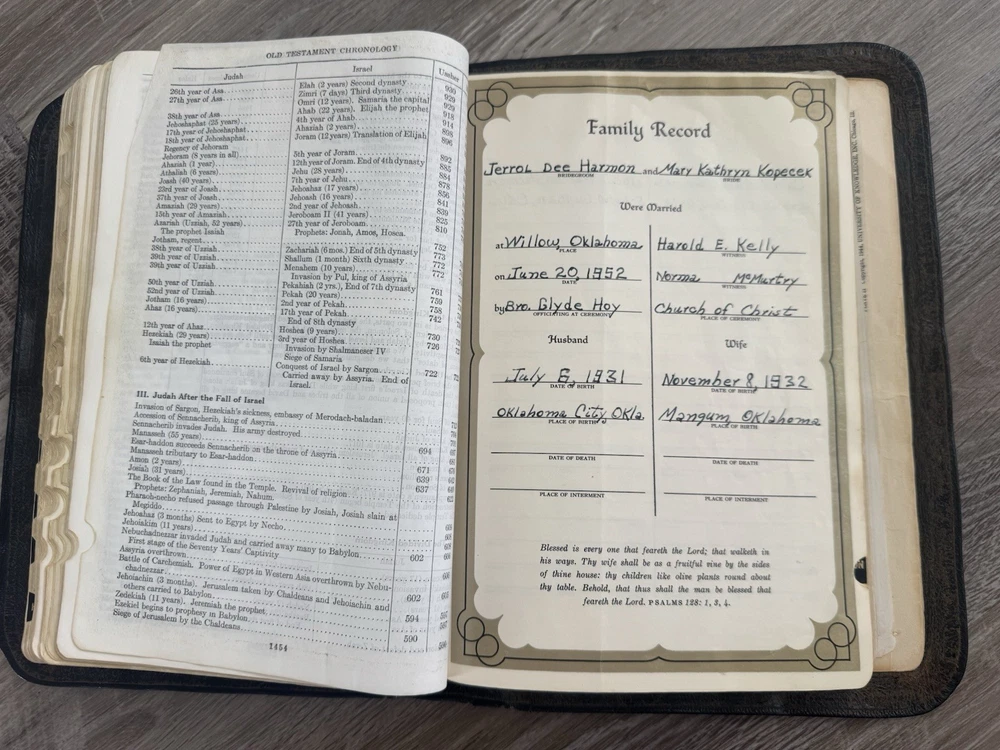 OLD TESTAMENT CHRONOLOGY
Judah Israel Ussher
26th year of Asa Elah (2 years) Second dynasty 930
27th year of Asa Zimri (7 days) Third dynasty 929
Omri (12 years). Samaria the capital 929
38th year of Asa Ahab (22 years). Elijah the prophet 918
Jehoshaphat (25 years) 4th year of Ahab 914
17th year of Jehoshaphat Ahaziah (2 years) 898
18th year of Jehoshaphat Joram (12 years) Translation of Elijah 896
Regency of Jehoram
Jehoram (8 years in all) 5th year of Joram 892
Ahaziah (1 year) 12th year of Joram. End of 4th dynasty 885
Athaliah (6 years) Jehu (28 years) 884
Joash (40 years) 7th year of Jehu 878
23rd year of Joash Jehoahaz (17 years) 856
37th year of Joash Jehoash (16 years) 841
Amaziah (29 years) 2nd year of Jehoash 839
15th year of Amaziah Jeroboam II (41 years) 825
Azariah (Uzziah, 52 years) 27th year of Jeroboam 810
The prophet Isaiah Prophets: Jonah, Amos, Hosea.
Jotham, regent
38th year of Uzziah Zachariah (6 mos.) End of 5th dynasty
39th year of Uzziah Shallum (1 month) Sixth dynasty
39th year of Uzziah Menahem (10 years) 772
Invasion by Pul, king of Assyria
50th year of Uzziah Pekahiah (2 yrs.), End of 7th dynasty 761
52nd year of Uzziah Pekah (20 years) 759
Jotham (16 years) 2nd year of Pekah 758
Ahaz (16 years) 17th year of Pekah 742
End of 8th dynasty
12th year of Ahaz Hoshea (9 years) 730
Hezekiah (29 years) 3rd year of Hoshea 726
Isaiah the prophet Invasion by Shalmaneser IV
Siege of Samaria
6th year of Hezekiah Conquest of Israel by Sargon 722
Carried away by Assyria. End of
Israel.
III. Judah After the Fall of Israel
Invasion of Sargon, Hezekiah's sickness, embassy of Merodach-baladan
Accession of Sennacherib, king of Assyria
Sennacherib invades Judah. His army destroyed
Manasseh (55 years) 694
Esar-haddon succeeds Sennacherib on the throne of Assyria
Manasseh tributary to Esar-haddon 671
Amon (2 years) 639
Josiah (31 years) 637
The Book of the Law found in the Temple. Revival of religion
Prophets: Zephaniah, Jeremiah, Nahum.
Pharaoh-necho refused passage through Palestine by Josiah, Josiah slain at
Megiddo
Jehoahaz (3 months) Sent to Egypt by Necho
Jehoiakim (11 years)
Nebuchadnezzar invaded Judah and carried away many to Babylon.
First stage of the Seventy Years' Captivity 602
Assyria overthrown
Battle of Carchemish. Power of Egypt in Western Asia overthrown by Nebu-
chadnezzar
Jehoiachin (3 months). Jerusalem taken by Chaldeans and Jehoiachin and
others carried to Babylon 602
Zedekiah (11 years). Jeremiah the prophet 594
Ezekiel begins to prophesy in Babylon
Siege of Jerusalem by the Chaldeans 590
1454
Family Record
Jerrol Dee Harmon and Mary Kathryn Kopecek
BRIDEGROOM BRIDE
Were Married
at Willow, Oklahoma
PLACE
on June 20, 1952
DATE
by Bro. Glyde Hoy
OFFICIATING AT CEREMONY
Harold E. Kelly
WITNESS
Norma McMurtry
WITNESS
Church of Christ
PLACE OF CEREMONY
Husband
July 6, 1931
DATE OF BIRTH
Oklahoma City, Okla.
PLACE OF BIRTH
DATE OF DEATH
PLACE OF INTERMENT
Wife
November 8, 1932
DATE OF BIRTH
Mangum Oklahoma
PLACE OF BIRTH
DATE OF DEATH
PLACE OF INTERMENT
Blessed is every one that feareth the Lord; that walketh in
his ways. Thy wife shall be as a fruitful vine by the sides
of thine house: thy children like olive plants round about
thy table. Behold, that thus shall the man be blessed that
feareth the Lord. PSALMS 128: 1, 3, 4.
UNIVERSITY OF KNOWLEDGE, INC. Chicago, Ill.